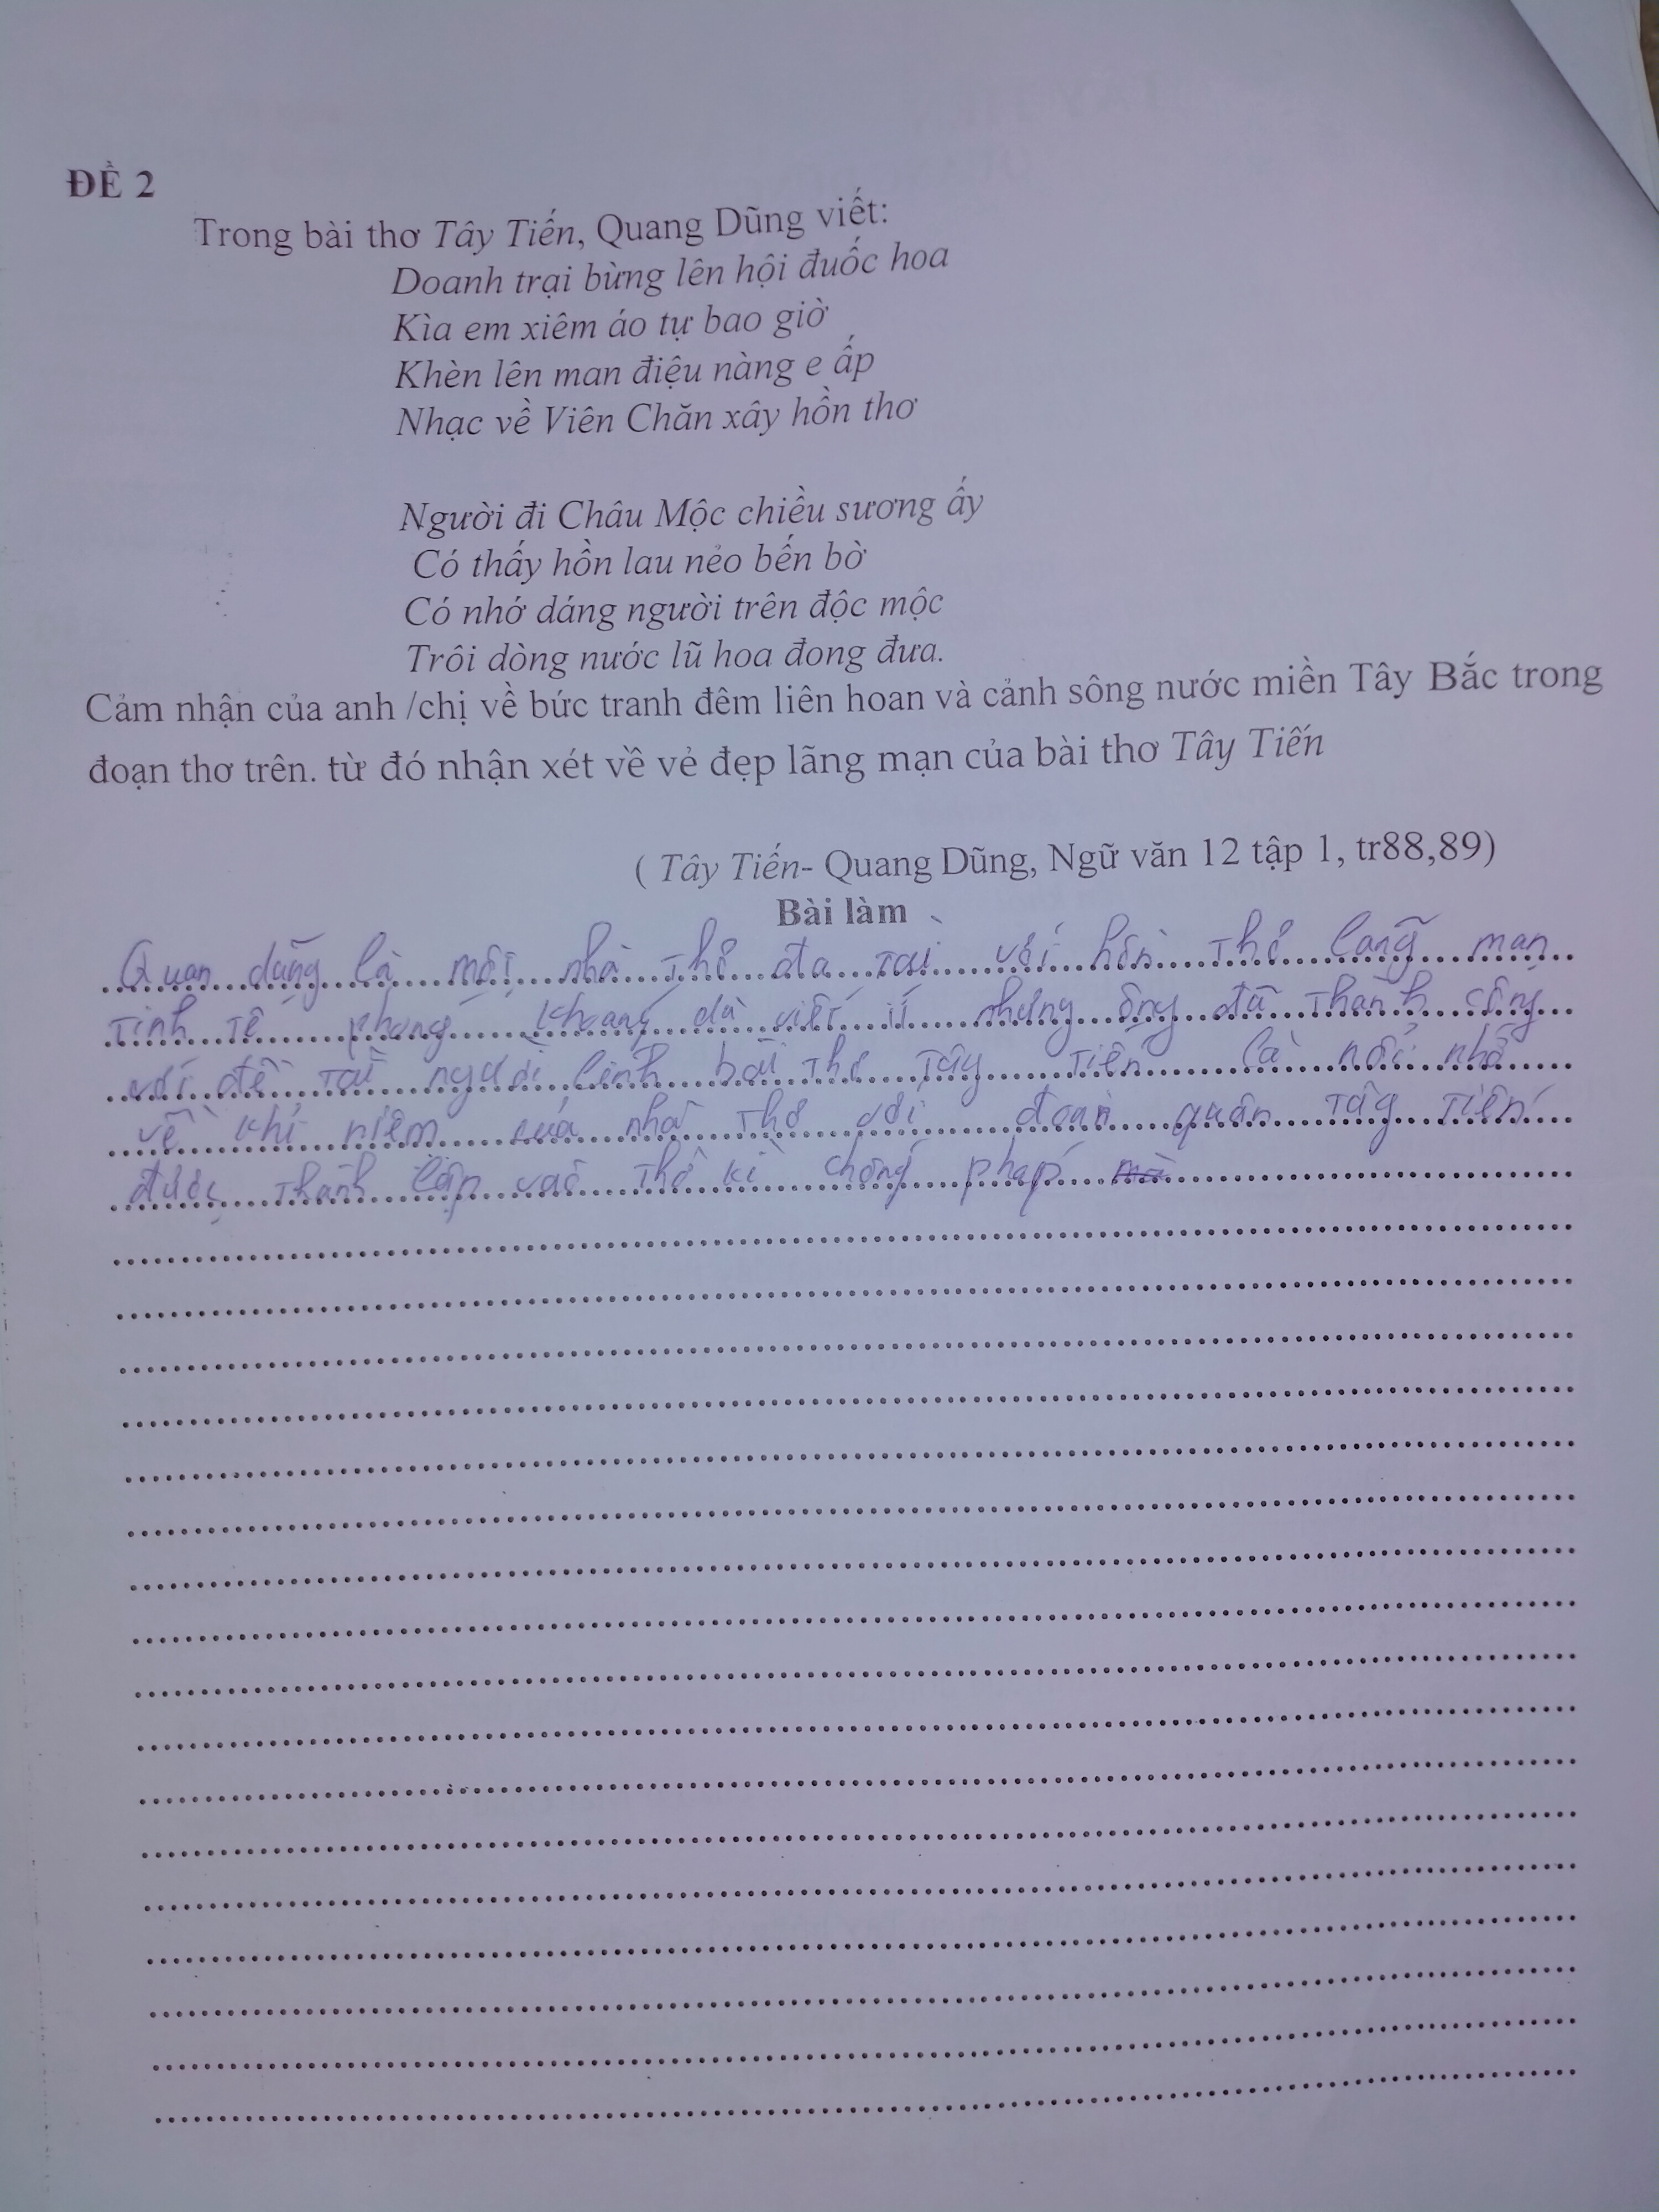 ĐỀ 2
Trong bài thơ Tây Tiến, Quang Dũng viết:
Doanh trại bừng lên hội đuốc hoa
Kìa em xiêm áo tự bao giờ
Khèn lên man điệu nàng e ấp
Nhạc về Viên Chăn xây hồn thơ
Người đi Châu Mộc chiều sương ấy
Có thấy hồn lau nẻo bến bờ
Có nhớ dáng người trên độc mộc
Trôi dòng nước lũ hoa đong đưa.
Cảm nhận của anh /chị về bức tranh đêm liên hoan và cảnh sông nước miền Tây Bắc trong
đoạn thơ trên. từ đó nhận xét về vẻ đẹp lãng mạn của bài thơ Tây Tiến
( Tây Tiến- Quang Dũng, Ngữ văn 12 tập 1, tr88,89)
Bài làm
Quan dũng là một nhà thơ đa tài với hồn thơ lãng mạn
tinh tế phóng khoáng dù viết ít nhưng ông đã thành công
với đề tài người lính bài thơ Tây Tiến là nỗi nhớ
về khỉ niệm của nhà thơ với đoàn quân tây Tiến
được thành lập vào thờ kì chống pháp